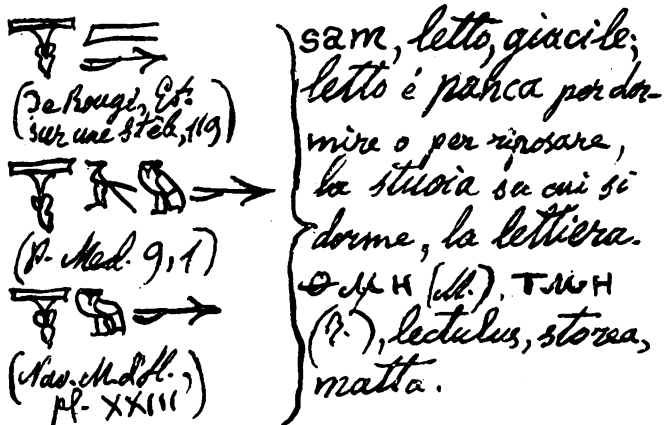 (De Rougé, Et.
sur une stèle, 119)
(P. Med. 9,1)
(Nav. M. d'H.,
pl. XXIII)
sam, letto, giacile;
letto é panca per dor-
mire o per riposare,
la stuoia su cui si
dorme, la lettiera.
ⲑⲙⲏ (M.), ⲧⲙⲏ
lectulus, storea,
matta.